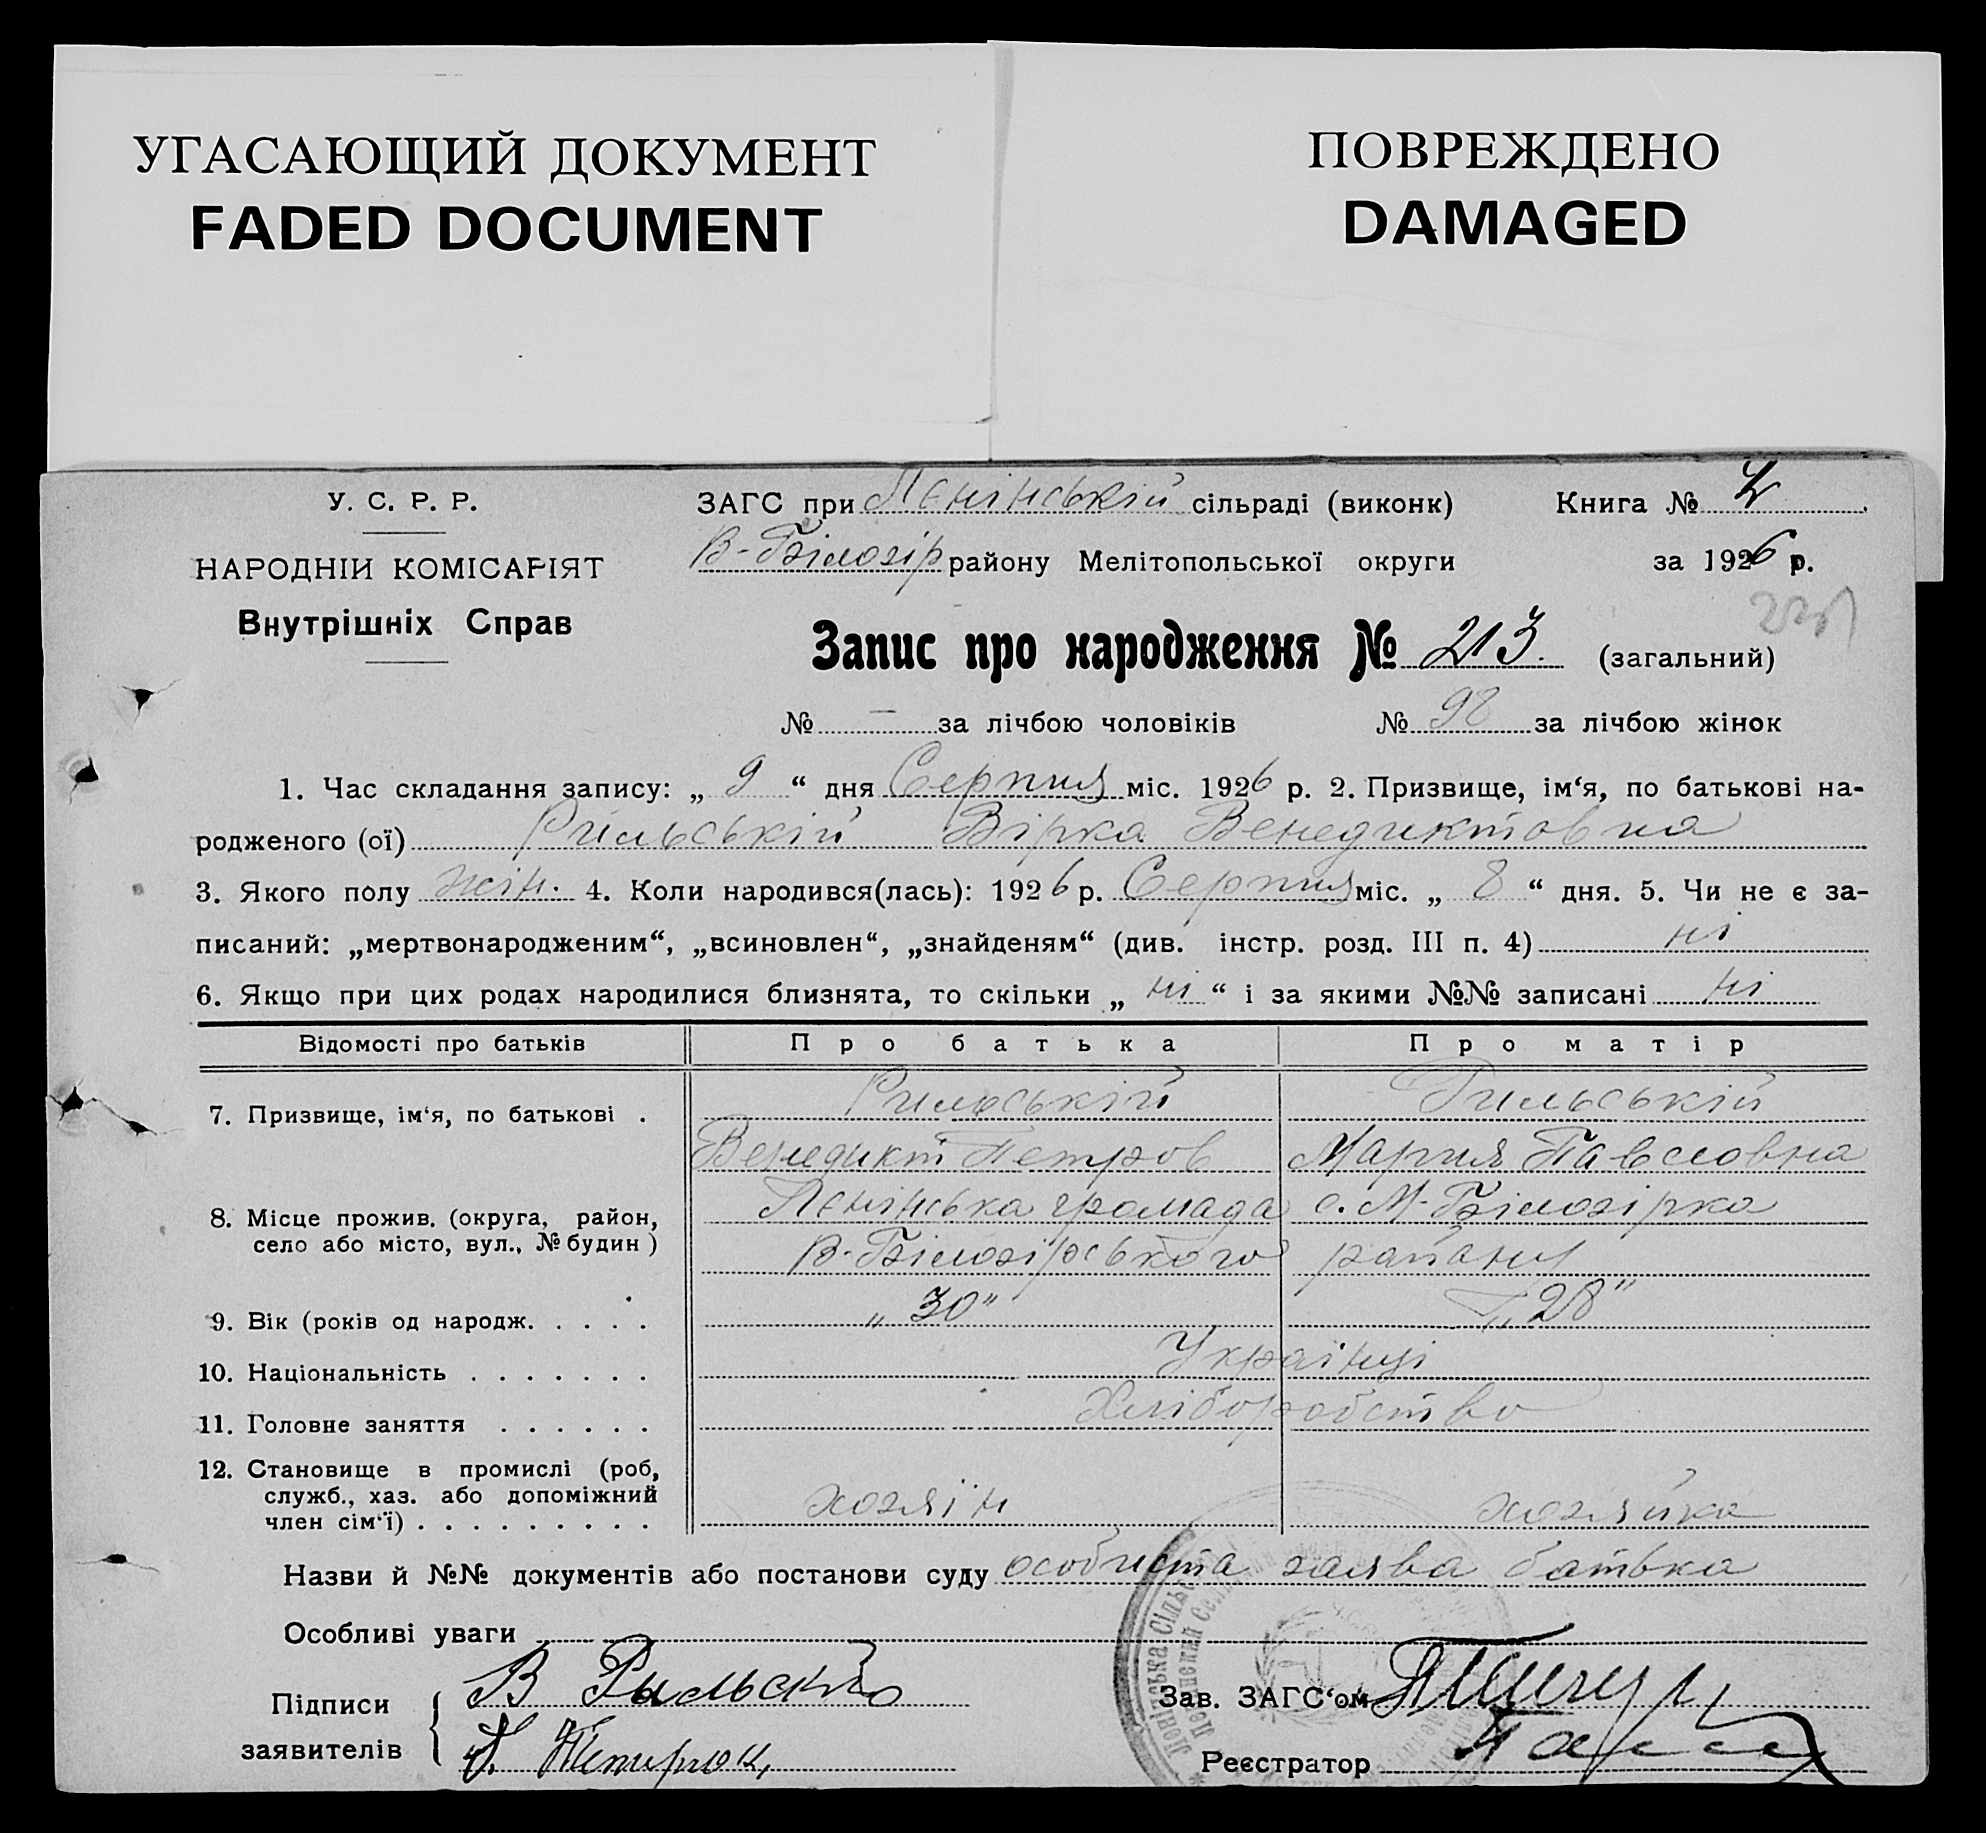 УГАСАЮЩИЙ ДОКУМЕНТ
FADED DOCUMENT
ПОВРЕЖДЕНО
DAMAGED
У. С. Р. Р.
НАРОДНІЙ КОМІСАРІЯТ
Внутрішніх Справ
ЗАГС при Ленінській сільраді (виконк) Книга №
В-Білозір району Мелітопольської округи за 1926 р.
Запис про народження № 213. (загальний)
№ — за лічбою чоловіків № 98 за лічбою жінок
1. Час складання запису: „ 9 “ дня Серпня міс. 1926 р. 2. Призвище, ім‘я, по батькові на-
родженого (ої) Рильській Вірка Венедиктовна
3. Якого полу жін. 4. Коли народився(лась): 1926 р. Серпня міс. „ 8 “ дня. 5. Чи не є за-
писаний: „мертвонародженим“, „всиновлен“, „знайденям“ (див. інстр. розд. III п. 4) ні
6. Якщо при цих родах народилися близнята, то скільки „ ні “ і за якими №№ записані ні
Відомості про батьків Про батька Про матір
7. Призвище, ім‘я, по батькові . Рильській Рильській
Венедикт Петров Мария Павловна
8. Місце прожив. (округа, район, село або місто, вул., № будин) Ленінська громада с. М-Білозірка
В-Білозірського района
9. Вік (років од народж. . . . . „30" „28"
10. Національність . . . . . . . Українці
11. Головне заняття . . . . . . Хліборобство
12. Становище в промислі (роб,
служб., хаз. або допоміжний
член сім‘ї) . . . . . . . . . хозяін хозяйка
Назви й №№ документів або постанови суду особиста заява батька
Особливі уваги
Підписи заявителів В Рыльский
Зав. ЗАГС‘ом
Реєстратор
Ленінська Сіль